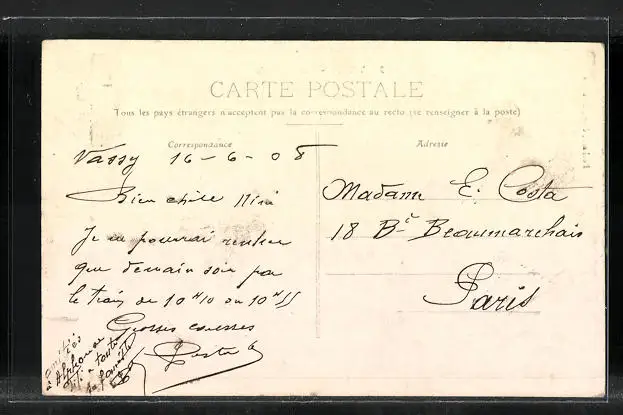 CARTE POSTALE
Tous les pays étrangers n'acceptent pas la correspondance au recto (se renseigner à la poste)
Correspondance
Adresse
Vassy 16-6-08
Bien chère Mimi
Je ne pourrai rentrer
que demain soir par
le train de 10h10 ou 10h55
Grosses caresses
Costa
Madame E. Costa
18 Bd Beaumarchais
Paris
Amitiés
Alphonse
à toute
la famille